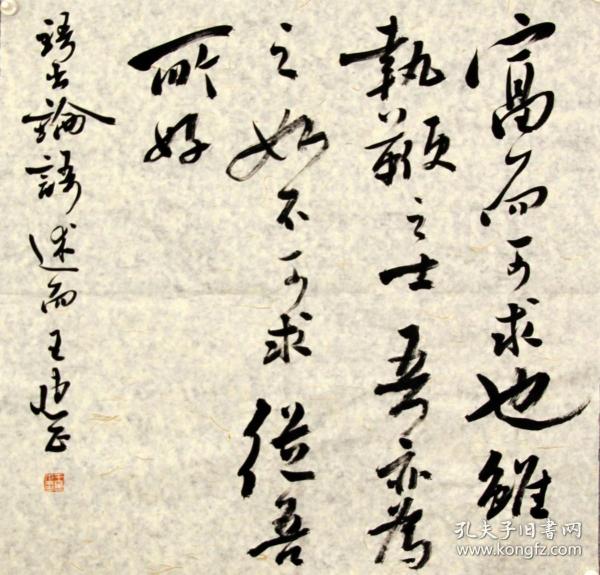 富而可求也雖
執鞭之士吾亦為
之如不可求從吾
所好
語出論語述而王
孔夫子旧書网
www.kongfz.com